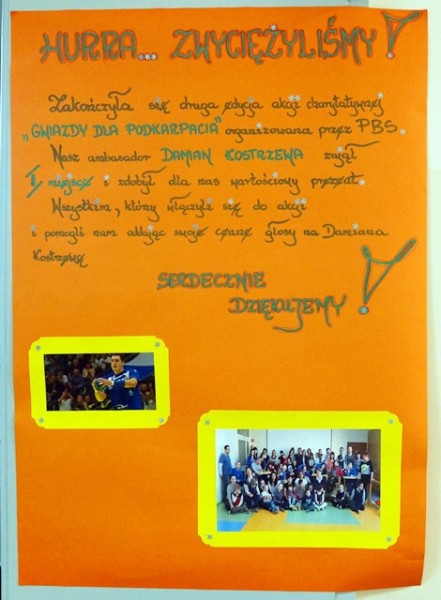 HURRA... ZWYCIĘŻYLIŚMY!
Zakończyła się druga edycja akcji charytatywnej
„GWIAZDY DLA PODKARPACIA" organizowana przez PBS.
Nasz ambasador DAMIAN KOSTRZEWA zajął
II miejsce i zdobył dla nas wartościowy prezent.
Wszystkim, którzy włączyli się do akcji
i pomogli nam oddając swoje cenne głosy na Damiana
Kostrzewę
SERDECZNIE
DZIĘKUJEMY!